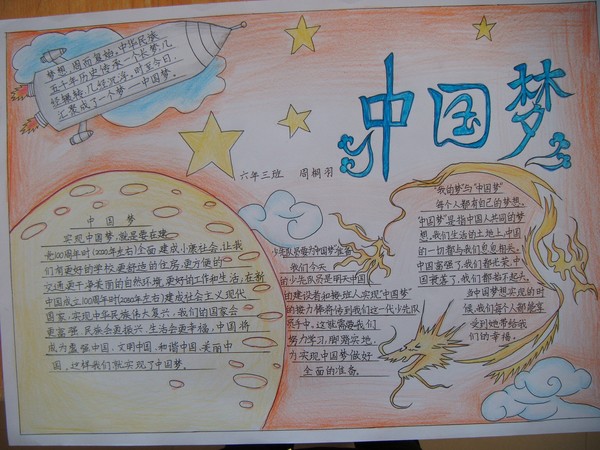 中国梦
梦想,周而复始,中华民族
五千年历史传承一个长梦,几
经辗转,几经沉浮,时至今日
汇聚成了一个梦——中国梦。
六年三班 周桐羽
中国梦
实现中国梦,就是要在建
党100周年时(2020年左右)全面建成小康社会,让我
们有更好的学校、更舒适的住房、更方便的
交通、更干净美丽的自然环境、更好的工作和生活;在新
中国成立100周年时(2050年左右)建成社会主义现代
国家,实现中华民族伟大复兴,我们的国家会
更富强,民族会更振兴,生活会更幸福,中国将
成为富强中国、文明中国、和谐中国、美丽中
国,这样我们就实现了中国梦。
少先队员要为中国梦准备
我们今天
的少先队员是明天中国
的建设者和接班人,实现“中国梦”
的接力棒将传到我们这一代少先队
员手中。这就需要我们
努力学习,脚踏实地,
为实现中国梦做好
全面的准备。
“我的梦”与“中国梦”
每个人都有自己的梦想,
“中国梦”是指中国人共同的梦
想,我们生活的土地上,中国
的一切都与我们息息相关。
中国富强了,我们都光荣,中
国衰落了,我们都抬不起头。
当中国梦想实现的时
候,我们每个人都能享
受到她带给我
们的幸福。